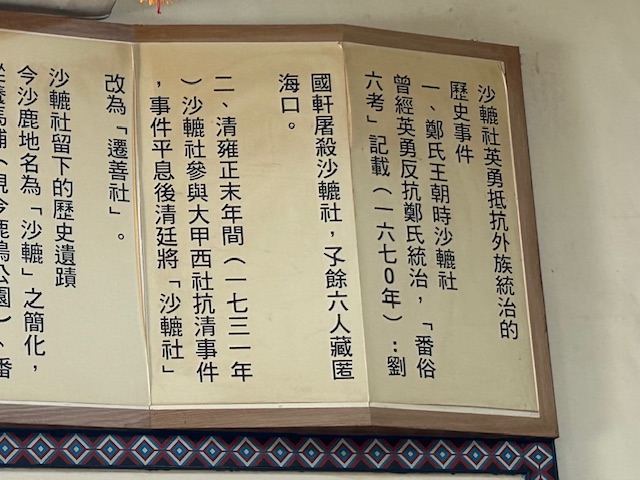 沙轆社英勇抵抗外族統治的
歷史事件
一、鄭氏王朝時沙轆社
曾經英勇反抗鄭氏統治，「番俗
六考」記載（一六七0年）：劉
國軒屠殺沙轆社，孑餘六人藏匿
海口。
二、清雍正末年間（一七三一年
）沙轆社參與大甲西社抗清事件
，事件平息後清廷將「沙轆社」
改為「遷善社」。
沙轆社留下的歷史遺蹟
今沙鹿地名為「沙轆」之簡化，
養馬埔（現今鹿鳴公園）、番